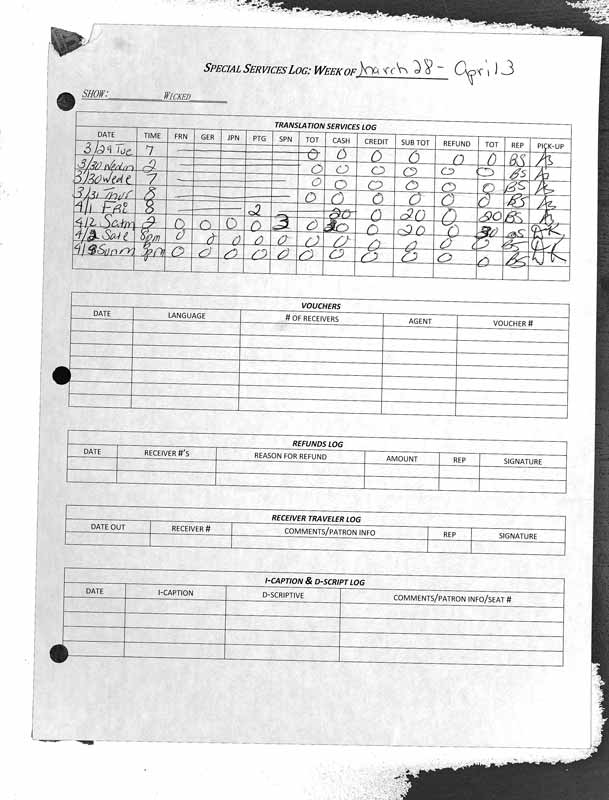 SPECIAL SERVICES LOG: WEEK OF March 28 - April 3
SHOW: WICKED
TRANSLATION SERVICES LOG
DATE TIME FRN GER JPN PTG SPN TOT CASH CREDIT SUB TOT REFUND TOT REP PICK-UP
3/29 Tue 7 0 0 0 0 0 0 BS
3/30 Wedm 2 0 0 0 0 0 0 BS
3/30 Wede 7 0 0 0 0 0 0 BS
3/31 Thur 8 0 0 0 0 0 0 BS
4/1 FRI 8 2 20 0 20 0 20 BS
4/2 Satm 2 0 0 0 0 3 0 0 20 0 30 BS DK
4/2 Sate 8pm 0 0 0 0 0 0 0 0 0 0 0 BS DK
4/3 Sunm pm 0 0 0 0 0 0 0 0 0 0 0 BS
VOUCHERS
DATE LANGUAGE # OF RECEIVERS AGENT VOUCHER #
REFUNDS LOG
DATE RECEIVER #'S REASON FOR REFUND AMOUNT REP SIGNATURE
RECEIVER TRAVELER LOG
DATE OUT RECEIVER # COMMENTS/PATRON INFO REP SIGNATURE
I-CAPTION & D-SCRIPT LOG
DATE I-CAPTION D-SCRIPTIVE COMMENTS/PATRON INFO/SEAT #